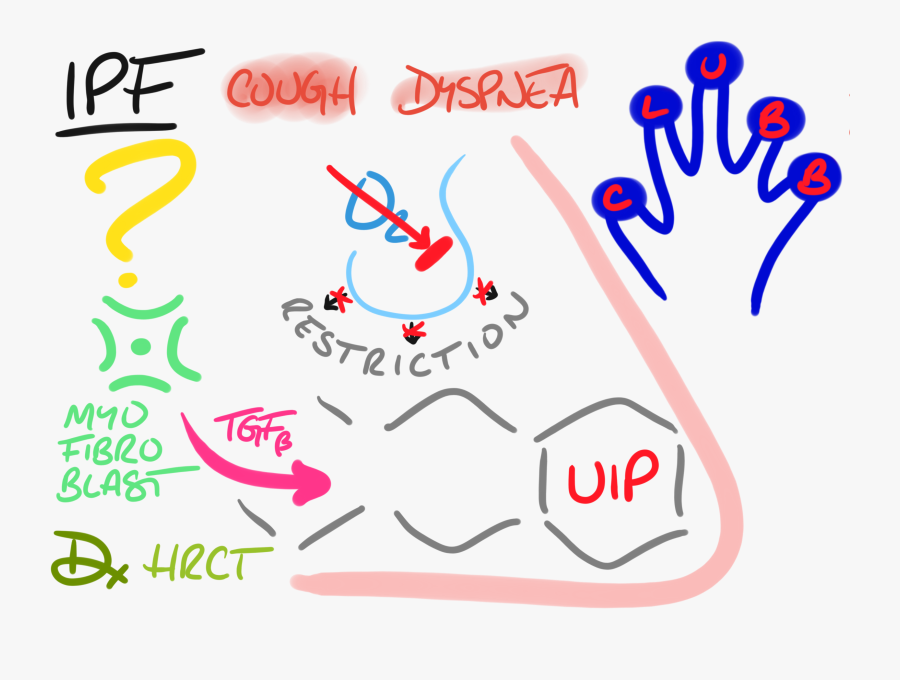 IPF
COUGH DYSPNEA
CLUBB
?
O₂
RESTRICTION
MYO
FIBRO
BLAST
TGFβ
UIP
Dx HRCT